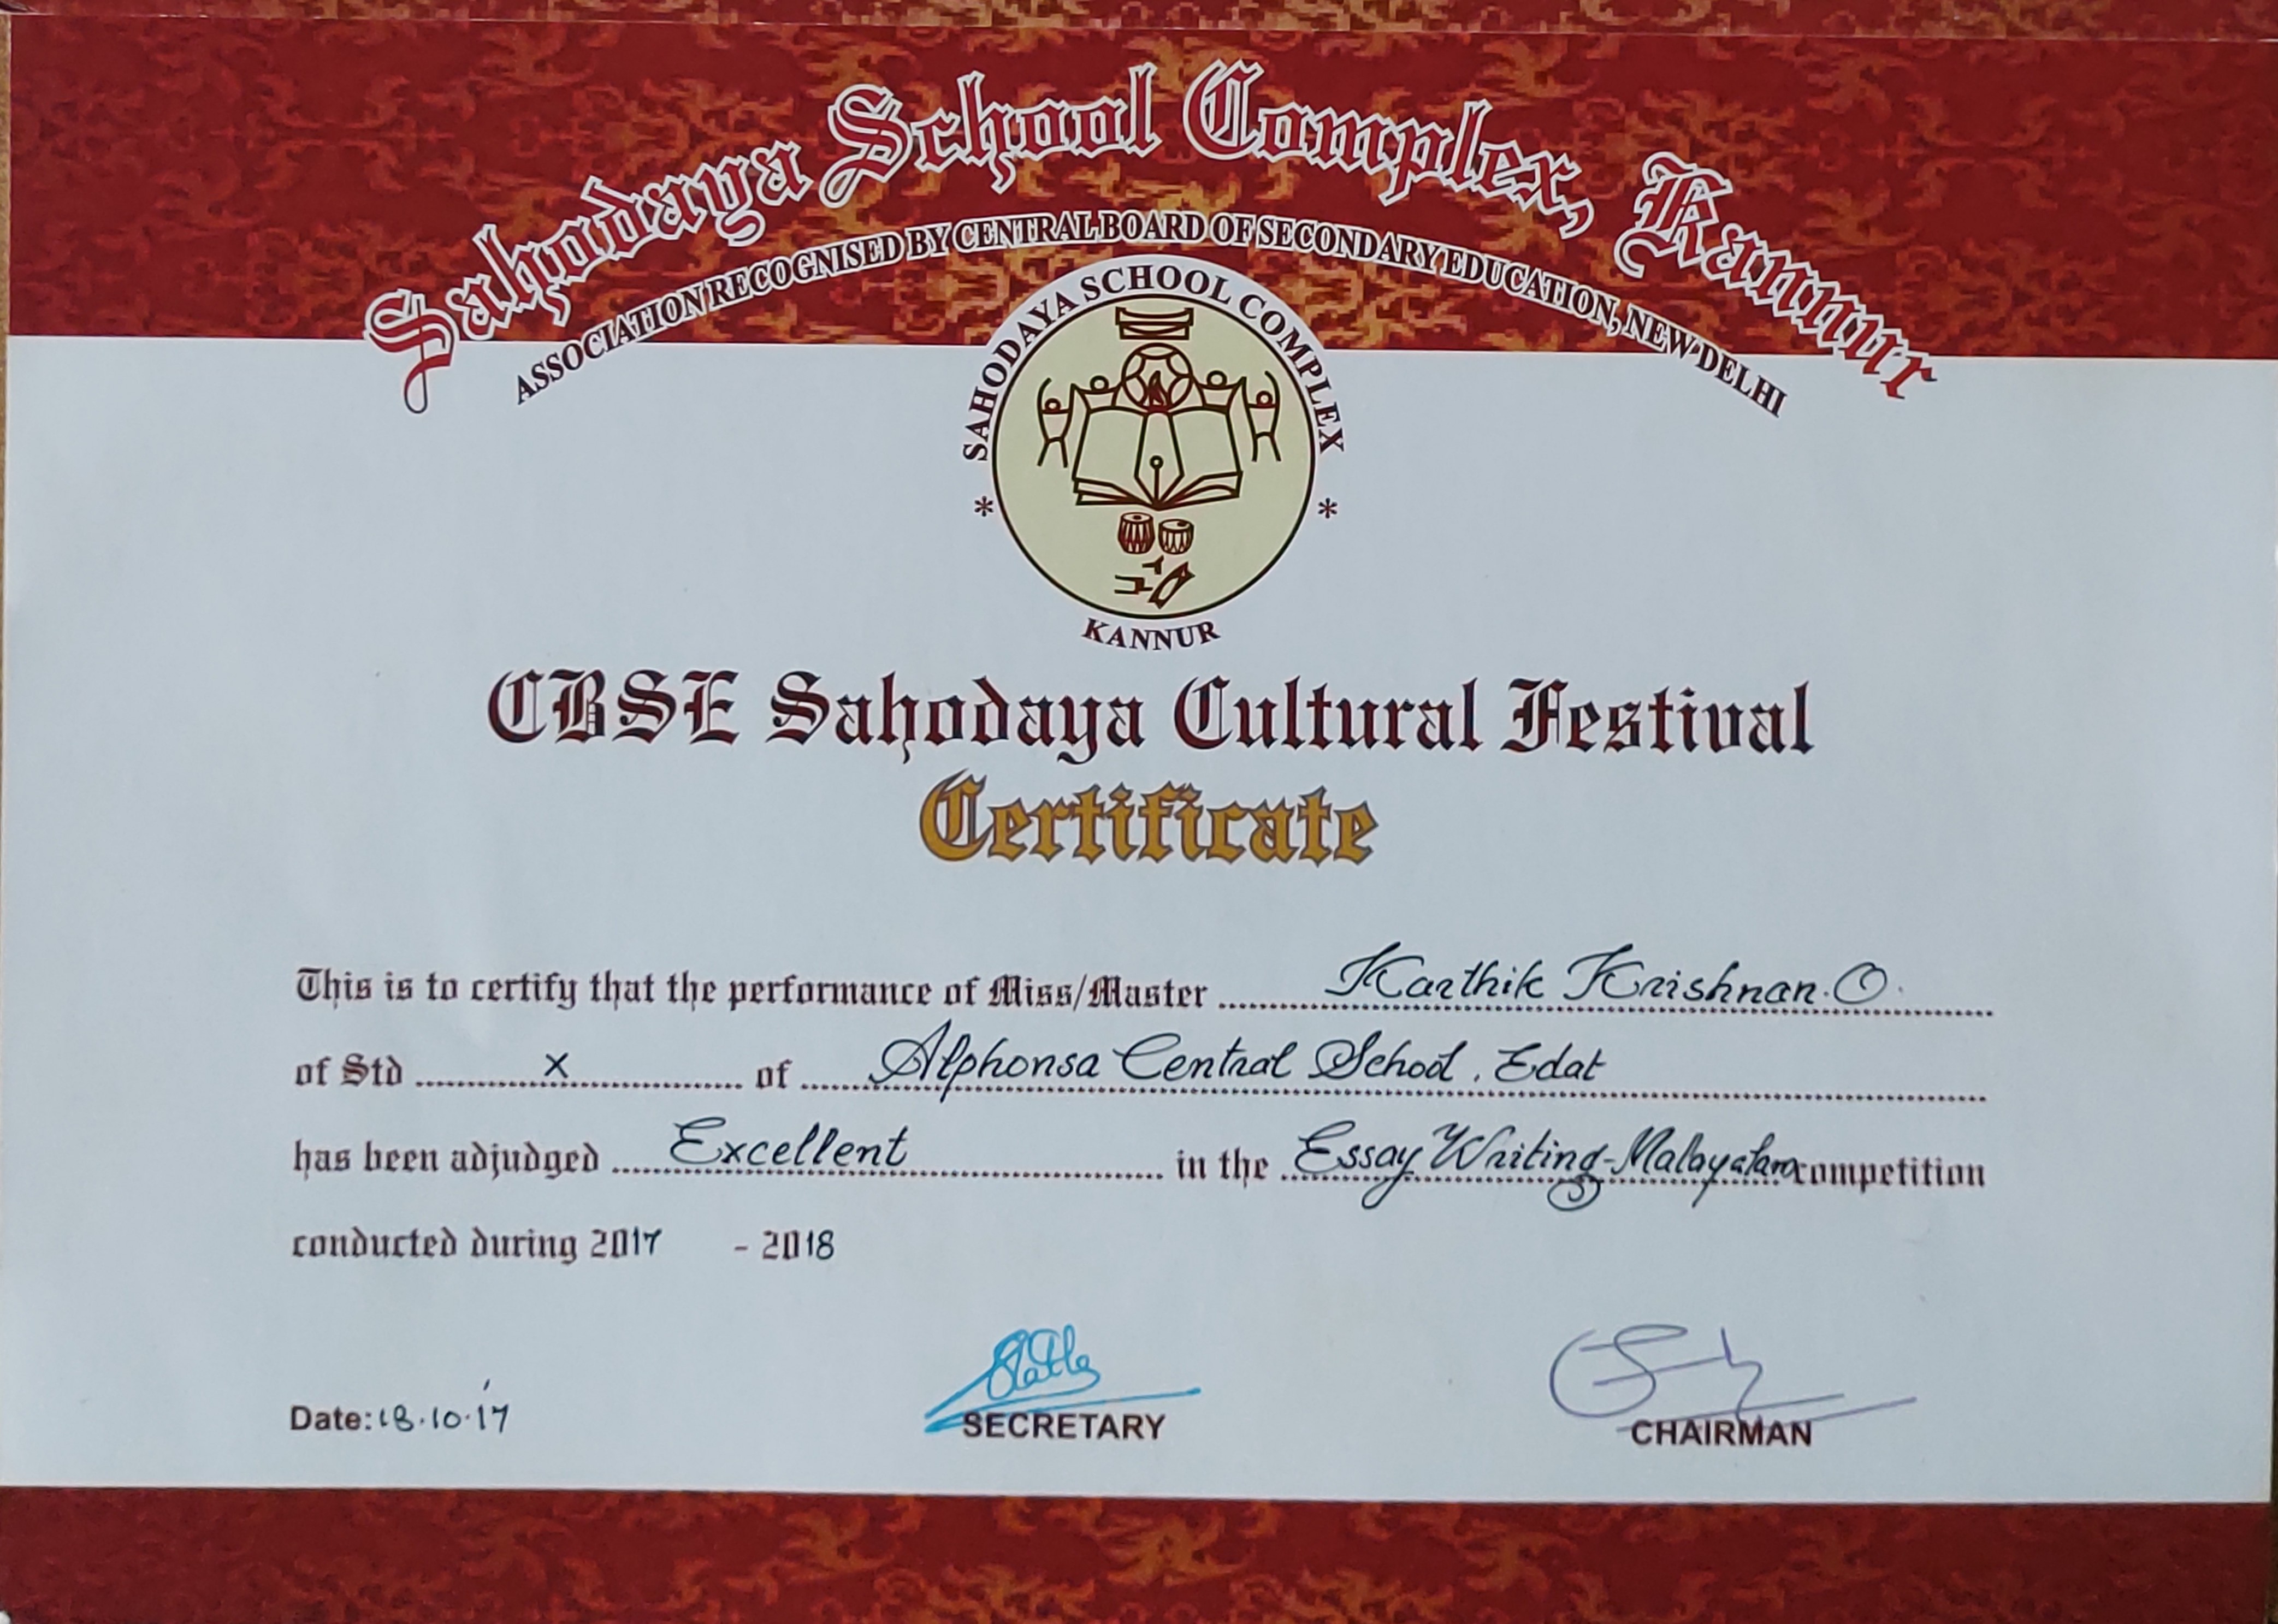 Sahodaya School Complex, Kannur
ASSOCIATION RECOGNISED BY CENTRAL BOARD OF SECONDARY EDUCATION, NEW DELHI
SAHODAYA SCHOOL COMPLEX
* *
KANNUR
CBSE Sahodaya Cultural Festival
Certificate
This is to certify that the performance of Miss/Master Karthik Krishnan.O.
of Std X of Alphonsa Central School, Edat
has been adjudged Excellent in the Essay Writing-Malayalam competition
conducted during 2017 - 2018
Date: 18.10.17
SECRETARY
CHAIRMAN